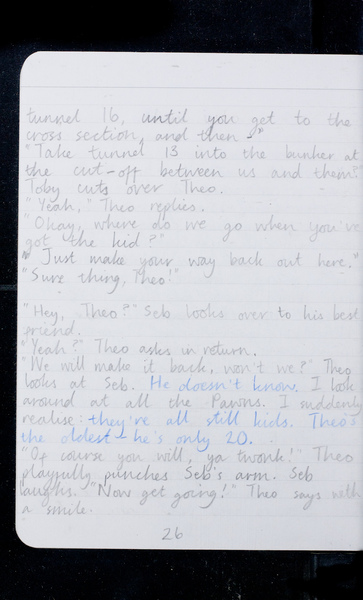 tunnel 16, until you get to the
cross section, and then -"
"Take tunnel 13 into the bunker at
the cut-off between us and them."
Toby cuts over Theo.
"Yeah," Theo replies.
"Okay, where do we go when you've
got the kid?"
"Just make your way back out here."
"Sure thing, Theo!"
"Hey, Theo?" Seb looks over to his best
friend.
"Yeah?" Theo asks in return.
"We will make it back, won't we?" Theo
looks at Seb. He doesn't know. I look
around at all the Pawns. I suddenly
realise: they're all still kids. Theo's
the oldest - he's only 20.
"Of course you will, ya twonk!" Theo
playfully punches Seb's arm. Seb
laughs. "Now get going!" Theo says with
a smile.
26